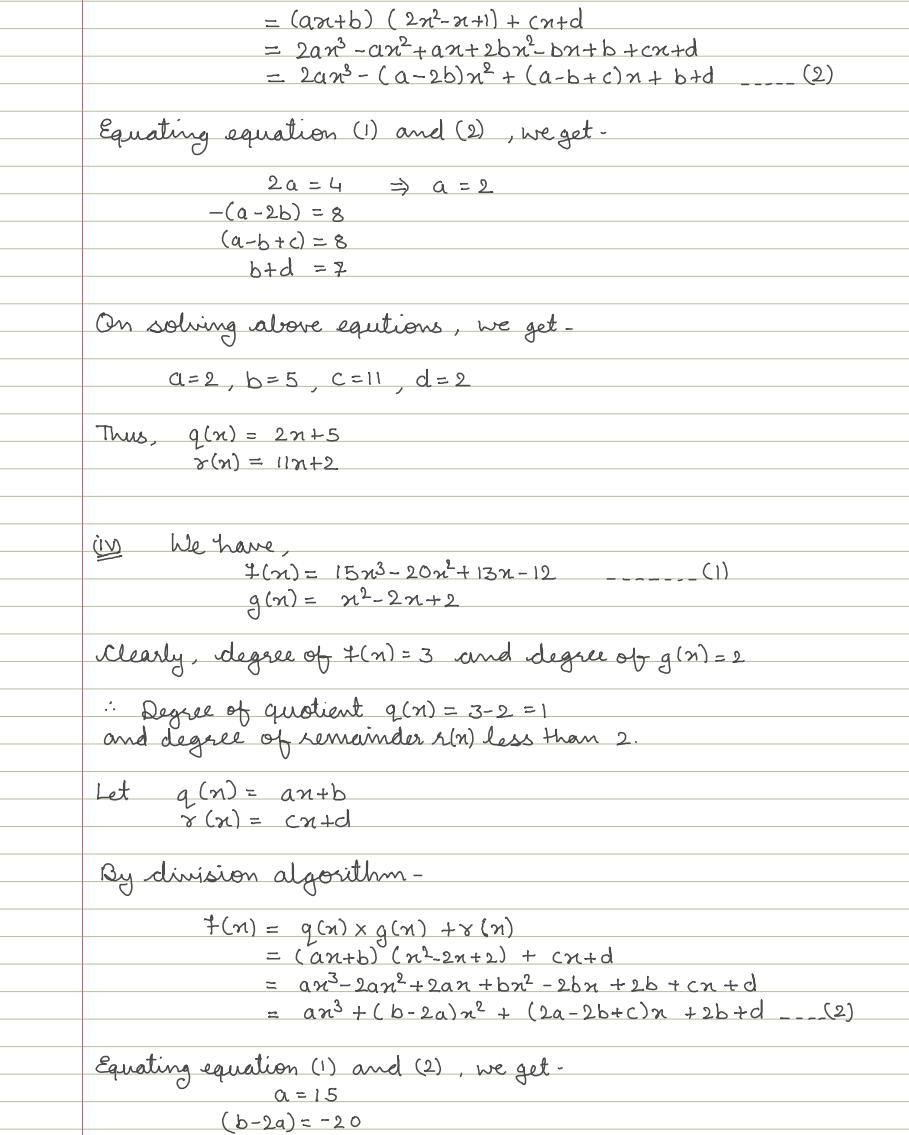 = (ax+b) (2x²-x+1) + cx+d
= 2ax³ -ax²+ax+2bx²-bx+b+cx+d
= 2ax³ - (a-2b)x² + (a-b+c)x + b+d ----- (2)
Equating equation (1) and (2), we get -
2a = 4 ⇒ a = 2
-(a-2b) = 8
(a-b+c) = 8
b+d = 7
On solving above equtions, we get -
a=2, b=5, c=11, d=2
Thus, q(x) = 2x+5
r(x) = 11x+2
(iv) We have,
f(x) = 15x³-20x²+13x-12 ------- (1)
g(x) = x²-2x+2
Clearly, degree of f(x) = 3 and degree of g(x) = 2
∴ Degree of quotient q(x) = 3-2 = 1
and degree of remainder r(x) less than 2.
Let q(x) = ax+b
r(x) = cx+d
By division algorithm -
f(x) = q(x) × g(x) + r(x)
= (ax+b) (x²-2x+2) + cx+d
= ax³-2ax²+2ax+bx²-2bx+2b+cx+d
= ax³ + (b-2a)x² + (2a-2b+c)x + 2b+d ----(2)
Equating equation (1) and (2), we get -
a = 15
(b-2a) = -20